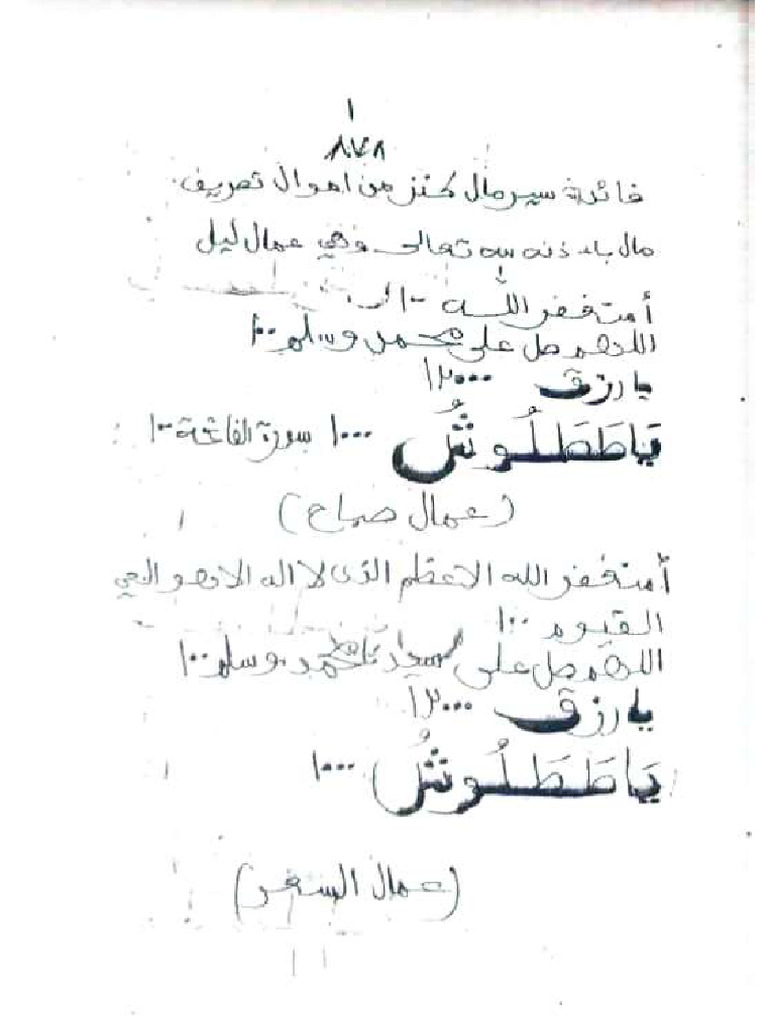 ١
٨٧٨
فائدة سير مال كنز من اموال تصريف
مال باذنه تعالى وهي عمال ليل
أستغفر الله ١٠٠
اللهم صل على محمد وسلم ١٠٠
يا رزق ١٢٠٠٠
يَاطَطَلُوشُ ١٠٠٠ سورة الفاتحة ١٠٠
(عمال صباح)
أستغفر الله الاعظم الذى لا اله الا هو الحي
القيوم ١٠٠
اللهم صل على سيدنا محمد وسلم ١٠٠
يا رزق ١٢٠٠٠
يَاطَطَلُوشُ ١٠٠٠
(عمال السغر)